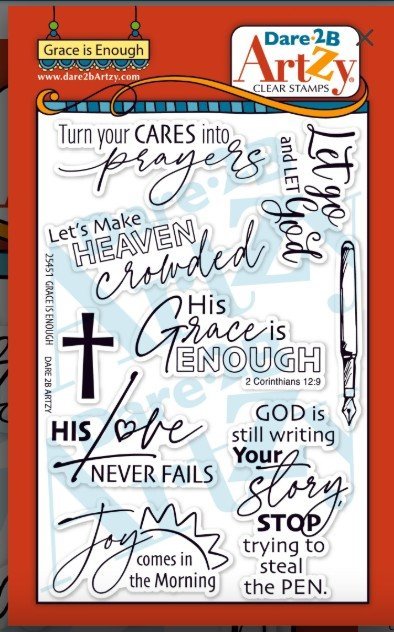 Grace is Enough
www.dare2bArtzy.com
Dare·2B
ArtZy
CLEAR STAMPS
Turn your CARES into
prayers
Let go
and LET
God
Let's Make
HEAVEN
crowded
25451 GRACE IS ENOUGH DARE 2B ARTZY
His
Grace is
ENOUGH
2 Corinthians 12:9
HIS Love
NEVER FAILS
GOD is
still writing
Your
story,
STOP
trying to
steal
the PEN.
Joy
comes in
the Morning
Dare·2B
Artzy
Dare·2B
Artzy